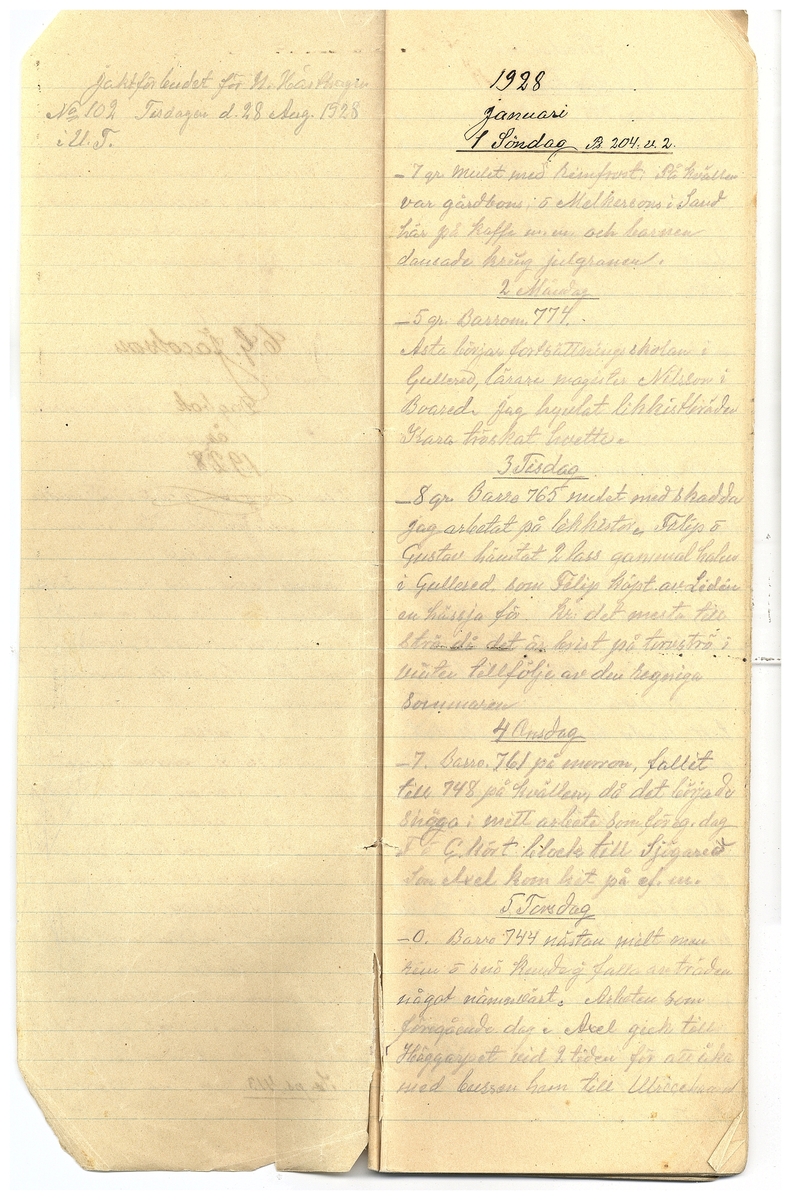 jaktförbudet för N. Hästhagen
No 102 Tisdagen d. 28 Aug. 1928
i U. T.
1928
januari
1 Söndag B 204. v. 2.
-7 gr. mulet med rimfrost. På kvällen
var gårdbons; o Melkersons i Sand
här på kaffe m.m. och barnen
dansade kring julgranen.
2 Måndag
-5 gr. Barrom. 774.
Asta börjar fortsättningsskolan i
Gullered, lärare magister Nilsson i
Boared. jag hyvlat likkistbräder
Kara tröskat hvette.
3 Tisdag
-8 gr. Barro 765 mulet med skadda
jag arbetat på likkistor, Filip o
Gustav hämtat 2 lass gammal halm
i Gullered som Filip köpt av Lidén
en hässja för kr. det mesta till
strö då det är brist på torvströ i
vinter tillfölje av den regniga
sommaren
4 Onsdag
-7. Barro. 761 på morron, fallit
till 748 på kvällen, då det började
snöga; mitt arbete som föreg. dag
F o G. kört block till Sjögared
Son Axel kom hit på ef. m.
5 Torsdag
-0. Barro 744 nästan milt men
rim o snö falla av träden
något nämnvärt. Arbeten som
föregående dag; Axel gick till
Häggarpet vid 2 tiden för att åka
med bussen hem till
C. G. Jacobson
Dagbok
år
1928